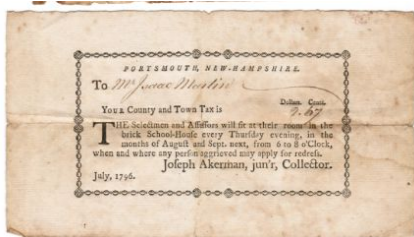 PORTSMOUTH, NEW-HAMPSHIRE.
To Mr Isaac Martin
Dollars. Cents.
YOUR County and Town Tax is
THE Selectmen and Assessors will sit at their room in the
brick School-House every Thursday evening, in the
months of August and Sept. next, from 6 to 8 o'Clock,
when and where any person aggrieved may apply for redress.
Joseph Akerman, jun'r, Collector.
July, 1796.